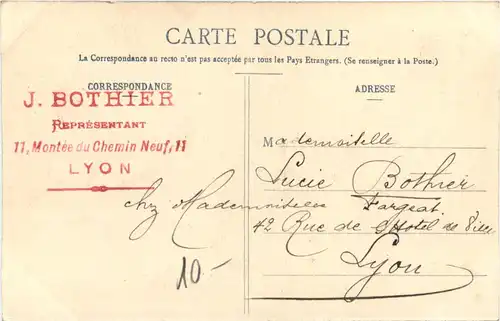 CARTE POSTALE
La Correspondance au recto n'est pas acceptée par tous les Pays Etrangers. (Se renseigner à la Poste.)
CORRESPONDANCE
J. BOTHIER
REPRÉSENTANT
11, Montée du Chemin Neuf, 11
LYON
ADRESSE
Mademoiselle
Lucie Bothier
chz Mademoiselles Fargeat
42 Rue de l'Hotel de Ville
Lyon
10-